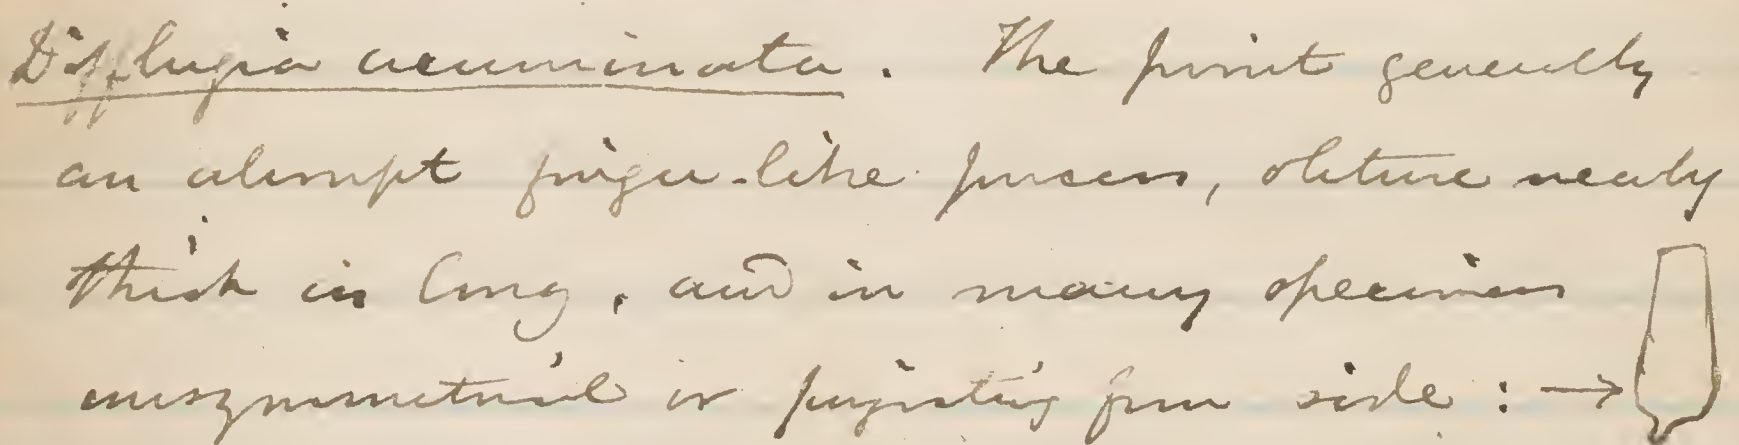 Difflugia acuminata. The point generally
an abrupt finger-like process, obtuse nearly
thick as long, and in many specimens
unsymmetrical or projecting from side: →